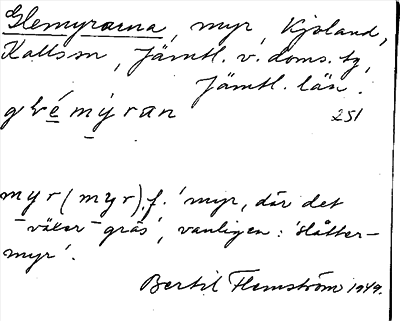 Glemyrarna, myr, Kjoland,
Kallssn, Jämtl. v. doms. tg,
Jämtl. län.
glémýran 251
myr (myr) f. 'myr, där det
växer gräs', vanligen: 'slåtter-
myr'.
Bertil Flemström 1949.